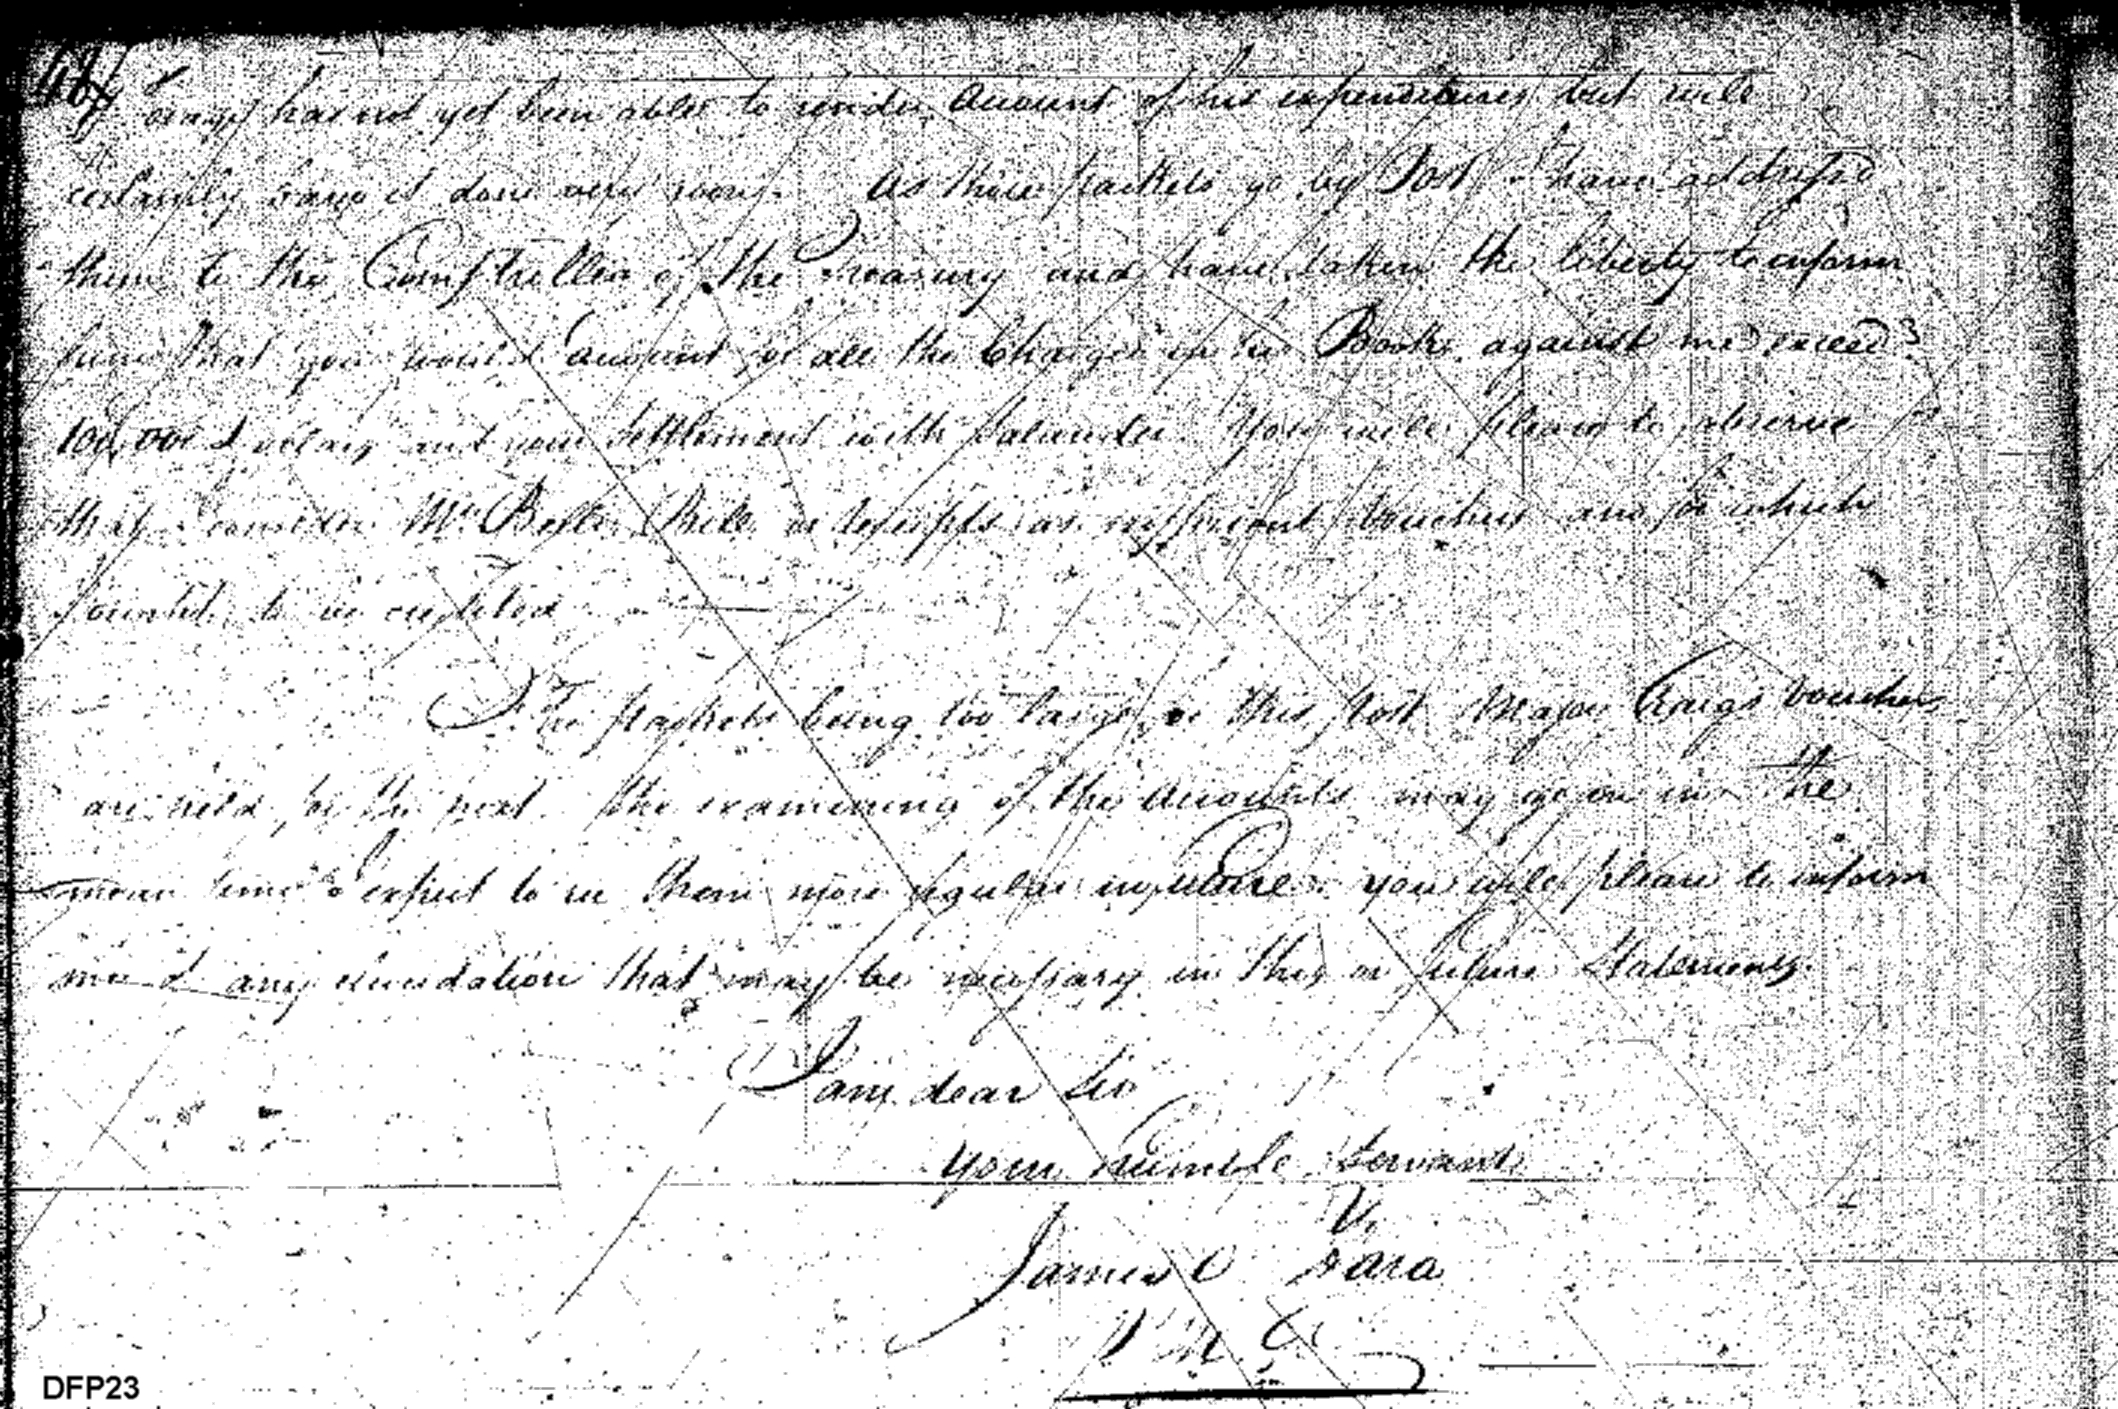 has not yet been able to render Account of his expenditures but will
certainly have it done very soon. As these packets go by Post I have addressed
them to the Comptroller of the Treasury and have taken the liberty to inform
him that you would Account for all the Charges in his Books against me exceed.g
100,000 Dollars and your settlement with You will please to observe
that I consider Mr Bills or receipts as sufficient Vouchers and for which
I ought to be credited
The packets being too large for this post Major Craigs Vouchers
are held for the next. The examining of the Accounts may go on in the
mean time I expect to see them more regular in future. you will please to inform
me of any elucidation that may be necessary in this or future Statements.
I am dear Sir
Your humble Servant
James O Hara
Q M G
DFP23